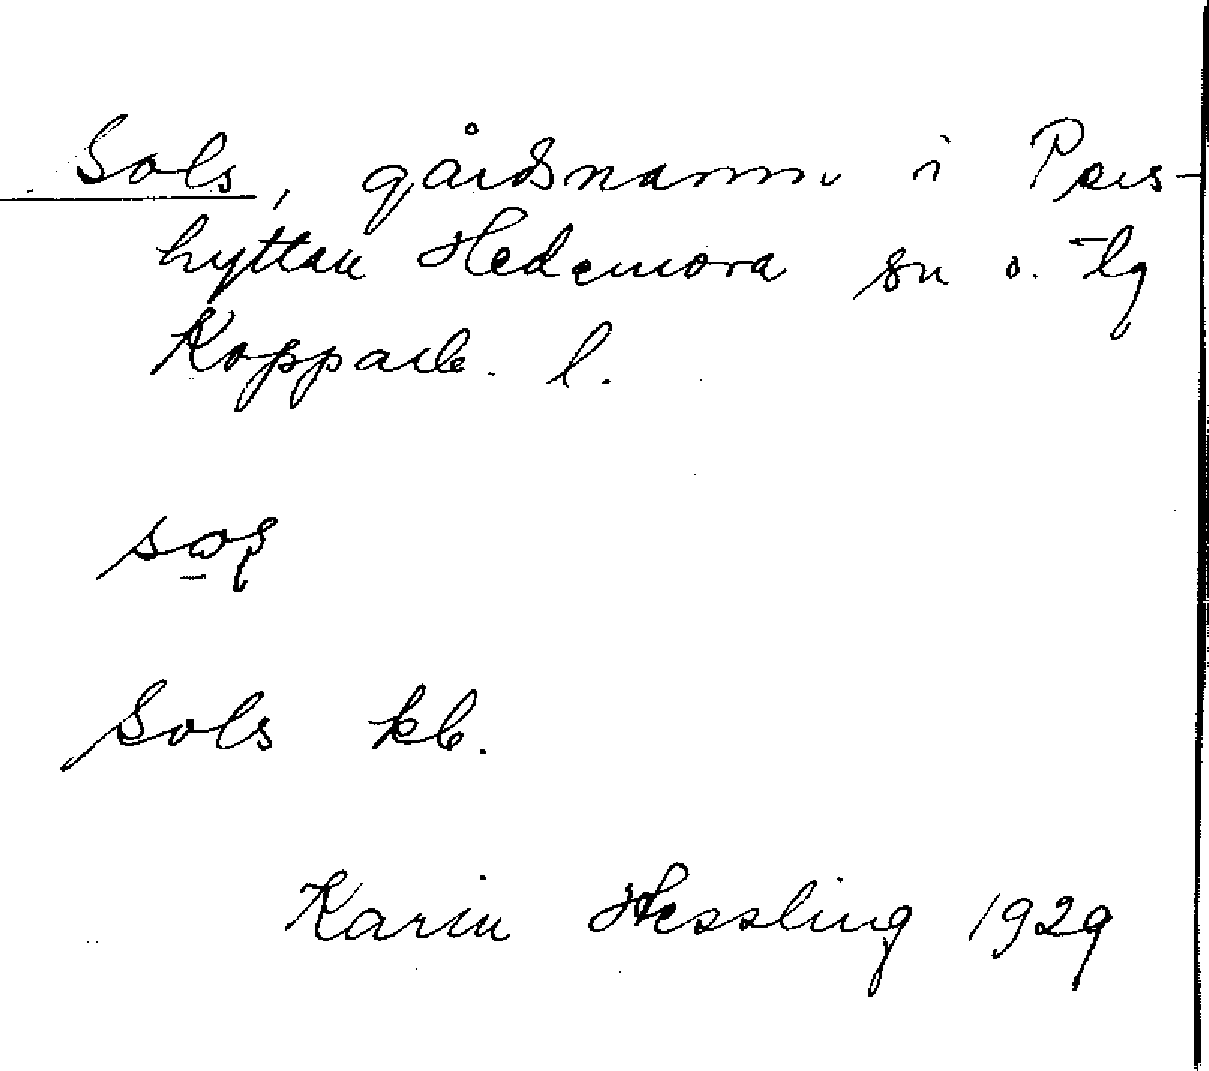 Sols, gårdsnamn i Pers-
hyttan Hedemora sn o. tg
Kopparb. l.
Sols kb.
Karin Hessling 1929